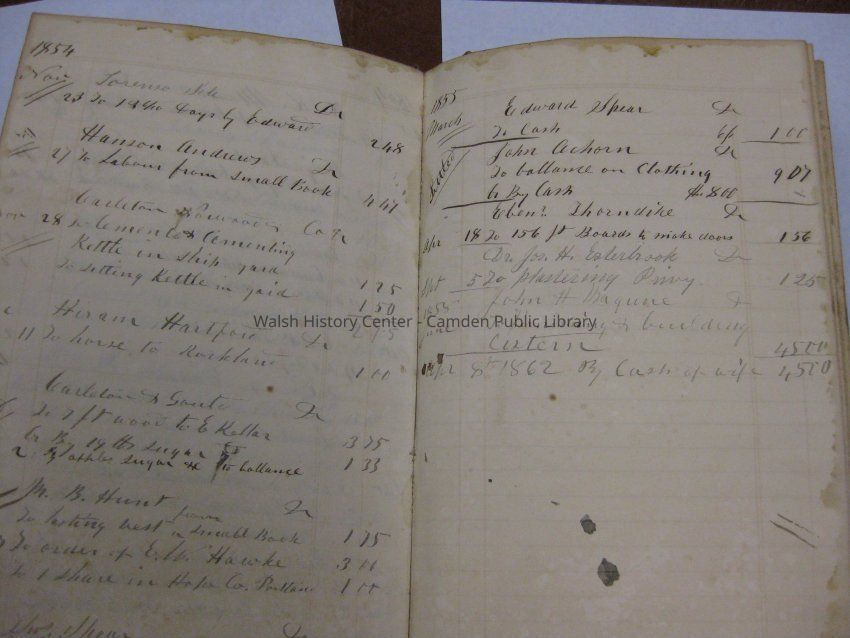 1854
Nov Lorenzo Dr
23 To Days by Edward 248
Hanson Andrews Dr
27 To Labour from Small Book 447
Carleton Norwood & Co Dr
28 To Cement & Cementing
Kettle in Ship yard 125
To setting Kettle in yard 1.50
Hiram Hartford Dr
11 To horse to Rockland 1 00
Carleton & Dr
To 7 ft wood to E Kellar 375
Cr By 19 lbs sugar
By sugar to ballance 133
M. B. Hunt Dr
To from small Book 175
To order of E. W. Hawke 300
To 1 share in Hope Co. 1 00
Spear Dr
1855
March Edward Spear Dr
To Cash 1 00
Settled John Achorn Dr
To ballance on Clothing 907
Cr By Cash
Ebenr Thorndike Dr
Apr 18 To 156 ft Boards to make doors 156
Dr. Jos. H. Esterbrook Dr
Sept 5 To plastering Privy 125
1855 John H Dr
June & building
Cistern 4500
Apr 8th 1862 By Cash of wife 4500
Walsh History Center - Camden Public Library